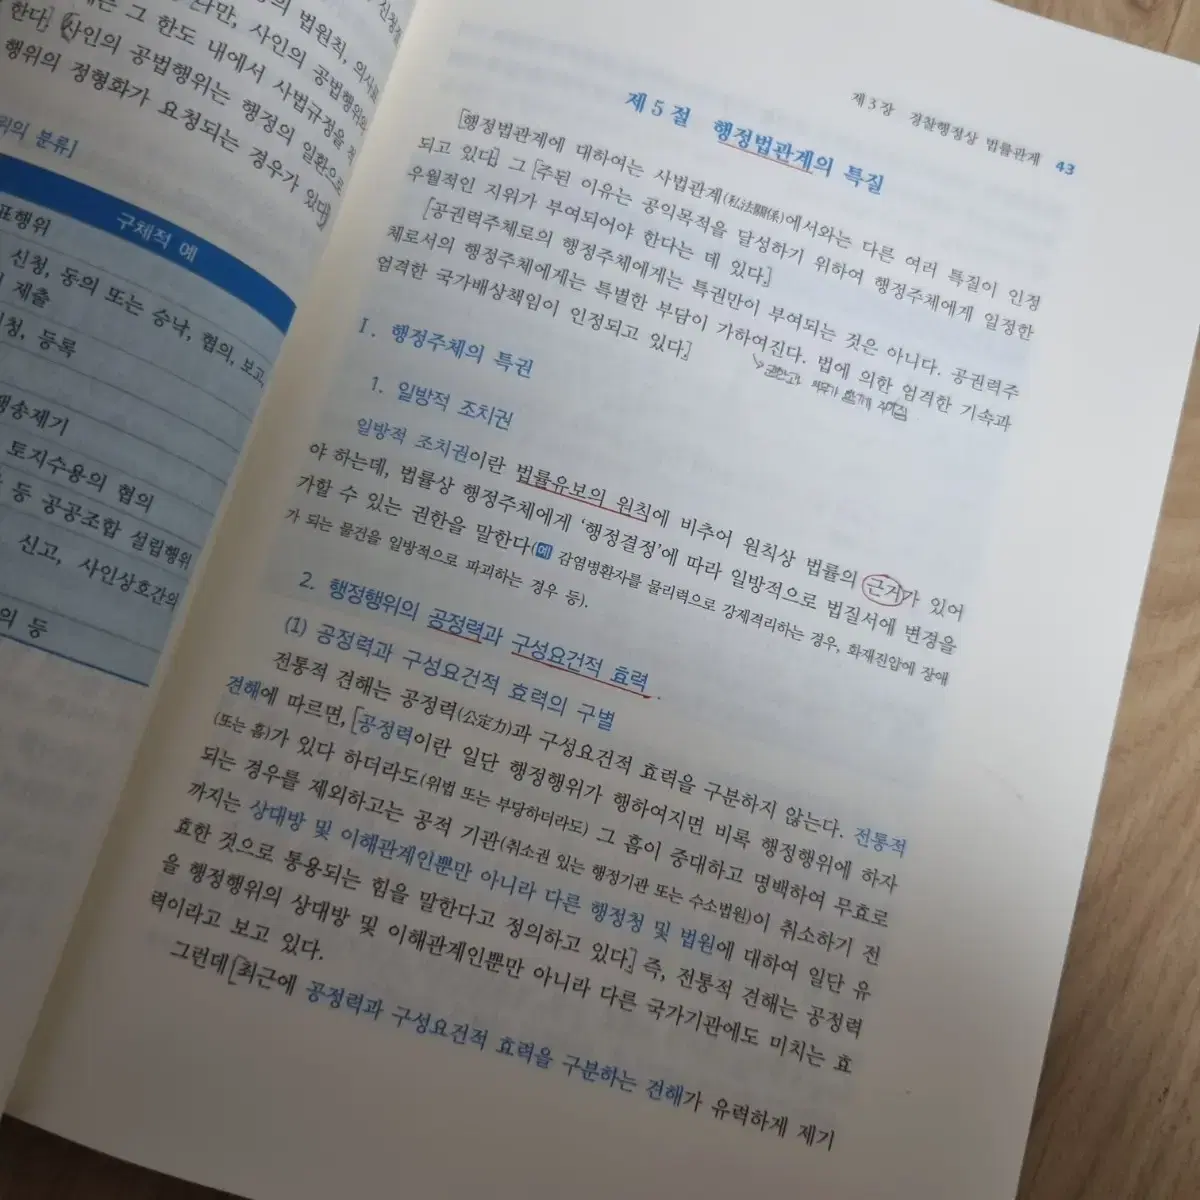 신청
의 법원칙, 의사표
다만, 사인의 공법행위의
는 그 한도 내에서 사법규정을 적
한다] [사인의 공법행위는 행정의 일환으로
행위의 정형화가 요청되는 경우가 있다]
리의 분류]
표행위
구체적 예
신청, 동의 또는 승낙, 협의, 보고,
제출
청, 등록
행송제기
토지수용의 협의
등 공공조합 설립행위
신고, 사인상호간의
의 등
제3장 경찰행정상 법률관계 43
제5절 행정법관계의 특질
[행정법관계에 대하여는 사법관계(私法關係)에서와는 다른 여러 특질이 인정
되고 있다] 그 [주된 이유는 공익목적을 달성하기 위하여 행정주체에게 일정한
우월적인 지위가 부여되어야 한다는 데 있다]
[공권력주체로의 행정주체에게는 특권만이 부여되는 것은 아니다. 공권력주
체로서의 행정주체에게는 특별한 부담이 가하여진다. 법에 의한 엄격한 기속과
엄격한 국가배상책임이 인정되고 있다]
권한과 의무가 함께 주어짐
Ⅰ. 행정주체의 특권
1. 일방적 조치권
일방적 조치권이란 법률유보의 원칙에 비추어 원칙상 법률의 근거가 있어
야 하는데, 법률상 행정주체에게 ‘행정결정’에 따라 일방적으로 법질서에 변경을
가할 수 있는 권한을 말한다(예 감염병환자를 물리력으로 강제격리하는 경우, 화재진압에 장애
가 되는 물건을 일방적으로 파괴하는 경우 등).
2. 행정행위의 공정력과 구성요건적 효력
(1) 공정력과 구성요건적 효력의 구별
전통적 견해는 공정력(公定力)과 구성요건적 효력을 구분하지 않는다. 전통적
견해에 따르면, [공정력이란 일단 행정행위가 행하여지면 비록 행정행위에 하자
(또는 흠)가 있다 하더라도(위법 또는 부당하더라도) 그 흠이 중대하고 명백하여 무효로
되는 경우를 제외하고는 공적 기관(취소권 있는 행정기관 또는 수소법원)이 취소하기 전
까지는 상대방 및 이해관계인뿐만 아니라 다른 행정청 및 법원에 대하여 일단 유
효한 것으로 통용되는 힘을 말한다고 정의하고 있다] 즉, 전통적 견해는 공정력
을 행정행위의 상대방 및 이해관계인뿐만 아니라 다른 국가기관에도 미치는 효
력이라고 보고 있다.
그런데 [최근에 공정력과 구성요건적 효력을 구분하는 견해가 유력하게 제기